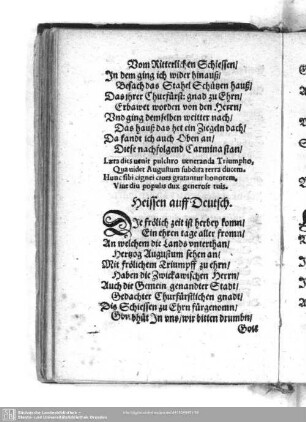 Vom Ritterlichen Schiessen/
In dem ging ich wider hinauß/
Besach das Stahel Schützen hauß/
Das jhrer Churfürst: gnad zu Ehrn/
Erbawet worden von den Herrn/
Vnd ging demselben weitter nach/
Das hauß das het ein Ziegeln dach/
Da fandt ich auch Oben an/
Diese nachfolgend Carmina stan/
Læta dies venit pulchro veneranda Triumpho,
Qua videt Augustum subdita terra ducem.
Hunc sibi cignei ciues gratantur honorem,
Viue diu populis dux generose tuis.
Heissen auff Deutsch.
DIe frölich zeit ist herbey komn/
Ein ehren tage aller fromn/
An welchem die Lands vnterthan/
Hertzog Augustum sehen an/
Mit frölichem Triumpff zu ehrn/
Haben die Zwickawischen Herrn/
Auch die Gemein genandter Stadt/
Gedachter Churfürstlichen gnadt/
Diß Schiessen zu Ehrn fürgenomn/
bhüt In vns/wir bitten drumbn/
Gott